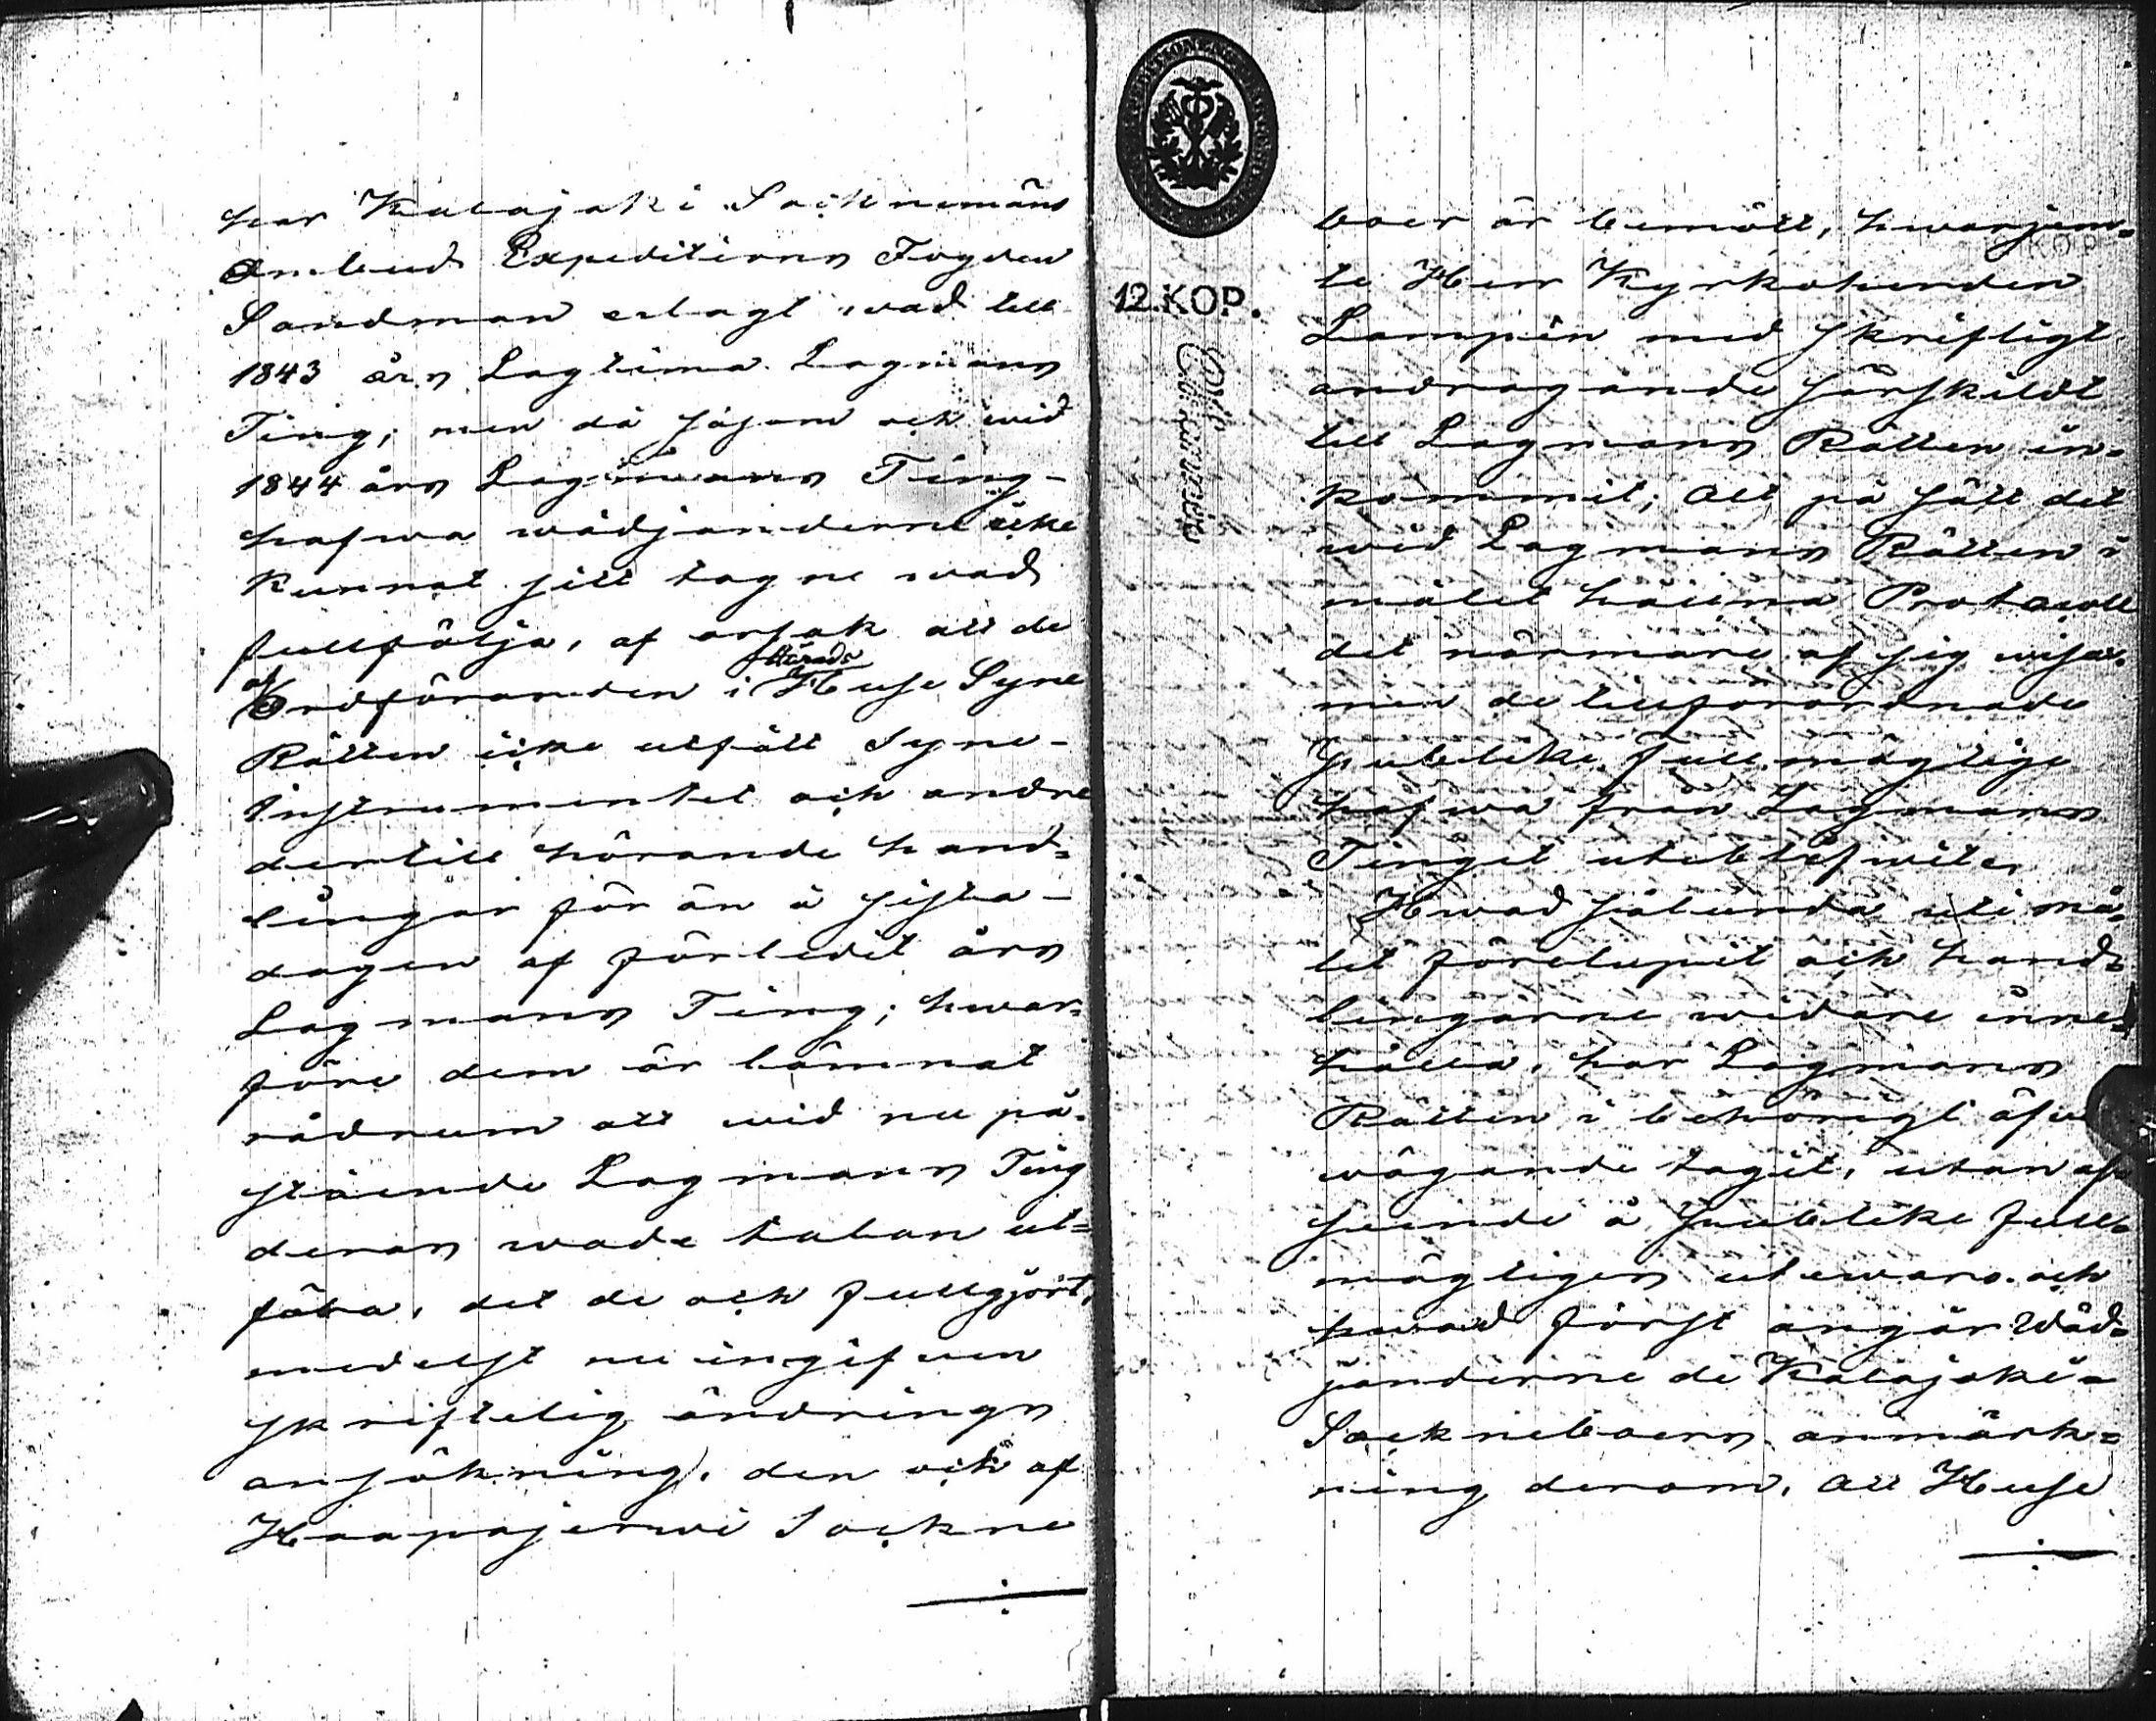 har Kalajoki Socknemäns
Ombud Expeditions Fogden
Sandman erlagt wad till
1843 års Lagtima Lagmans
Ting; men då såsom och wid
1844 års Lagmans Ting
hafwa wädjanderne icke
kunnat sitt tagne wad
fullfölja, af orsak att de
af Ordföranden i Härads Huse Syne
Rätten icke utfått Syne-
Instrumentet och andre
dertill hörande hand=
lingar för än å sista
dagen af förledit års
Lagmans Ting; hwar=
före dem är lämnat
rådrum att wid nu på-
stående Lagmans Ting
deras wade talan ut=
föra, det de ock fullgjort,
medelst nu ingifwen
skriftelig ändrings
ansökning, den ock af
Haapajerwi Sockne
12.KOP.
boer är bemött, hwarjem=
te Herr Kyrkoherden
Lampén med skriftligt
andragande särskildt
till Lagmans Rätten in=
kommit; allt på sätt det
wid Lagmans Rätten i
målet hållna Protocoll
det närmare af sig wisar.
men de tillförordnade
publike fullmägtige
hafwa från Lagmans
Tinget uteblifwit.
Hwad sålunda uti må=
let förelupit och hand=
lingarne widare inne=
hålla, har Lagmans
Rätten i behörigt öfwer
wägande tagit, utan af=
seende å publike full=
mägtiges utewaro. och
hwad först angår Wäd=
janderne de Kalajoki
Sockneboers anmärk=
ning derom, att Huse